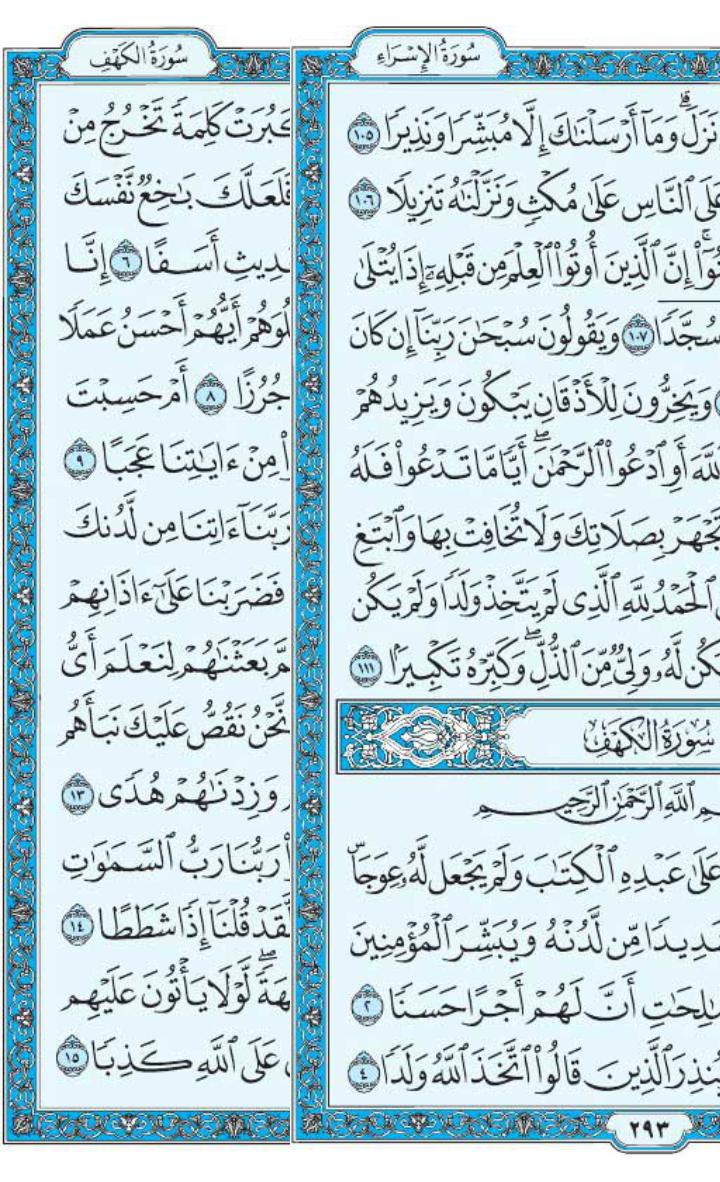 سُورَةُ الإِسْرَاءِ
نَزَلَ ۗ وَمَآ أَرْسَلْنَٰكَ إِلَّا مُبَشِّرًا وَنَذِيرًا ١٠٥
عَلَى ٱلنَّاسِ عَلَىٰ مُكْثٍ وَنَزَّلْنَٰهُ تَنزِيلًا ١٠٦
إِنَّ ٱلَّذِينَ أُوتُوا۟ ٱلْعِلْمَ مِن قَبْلِهِۦٓ إِذَا يُتْلَىٰ
سُجَّدًا ١٠٧ وَيَقُولُونَ سُبْحَٰنَ رَبِّنَآ إِن كَانَ
وَيَخِرُّونَ لِلْأَذْقَانِ يَبْكُونَ وَيَزِيدُهُمْ
ٱللَّهَ أَوِ ٱدْعُوا۟ ٱلرَّحْمَٰنَ ۖ أَيًّا مَّا تَدْعُوا۟ فَلَهُ
تَجْهَرْ بِصَلَاتِكَ وَلَا تُخَافِتْ بِهَا وَٱبْتَغِ
ٱلْحَمْدُ لِلَّهِ ٱلَّذِى لَمْ يَتَّخِذْ وَلَدًا وَلَمْ يَكُن
يَكُن لَّهُۥ وَلِىٌّ مِّنَ ٱلذُّلِّ ۖ وَكَبِّرْهُ تَكْبِيرًۢا ١١١
سُورَةُ الكَهْفِ
ٱللَّهِ ٱلرَّحْمَٰنِ ٱلرَّحِيمِ
عَلَىٰ عَبْدِهِ ٱلْكِتَٰبَ وَلَمْ يَجْعَل لَّهُۥ عِوَجَا
شَدِيدًا مِّن لَّدُنْهُ وَيُبَشِّرَ ٱلْمُؤْمِنِينَ
ٱلصَّٰلِحَٰتِ أَنَّ لَهُمْ أَجْرًا حَسَنًا ٢
وَيُنذِرَ ٱلَّذِينَ قَالُوا۟ ٱتَّخَذَ ٱللَّهُ وَلَدًا ٤
٢٩٣
سُورَةُ الكَهْفِ
كَبُرَتْ كَلِمَةً تَخْرُجُ مِنْ
فَلَعَلَّكَ بَٰخِعٌ نَّفْسَكَ
ٱلْحَدِيثِ أَسَفًا ٦ إِنَّا
لِنَبْلُوَهُمْ أَيُّهُمْ أَحْسَنُ عَمَلًا
جُرُزًا ٨ أَمْ حَسِبْتَ
مِنْ ءَايَٰتِنَا عَجَبًا ٩
رَبَّنَآ ءَاتِنَا مِن لَّدُنكَ
فَضَرَبْنَا عَلَىٰٓ ءَاذَانِهِمْ
ثُمَّ بَعَثْنَٰهُمْ لِنَعْلَمَ أَىُّ
نَّحْنُ نَقُصُّ عَلَيْكَ نَبَأَهُم
وَزِدْنَٰهُمْ هُدًى ١٣
رَبُّنَا رَبُّ ٱلسَّمَٰوَٰتِ
لَّقَدْ قُلْنَآ إِذًا شَطَطًا ١٤
ءَالِهَةً ۖ لَّوْلَا يَأْتُونَ عَلَيْهِم
عَلَى ٱللَّهِ كَذِبًا ١٥